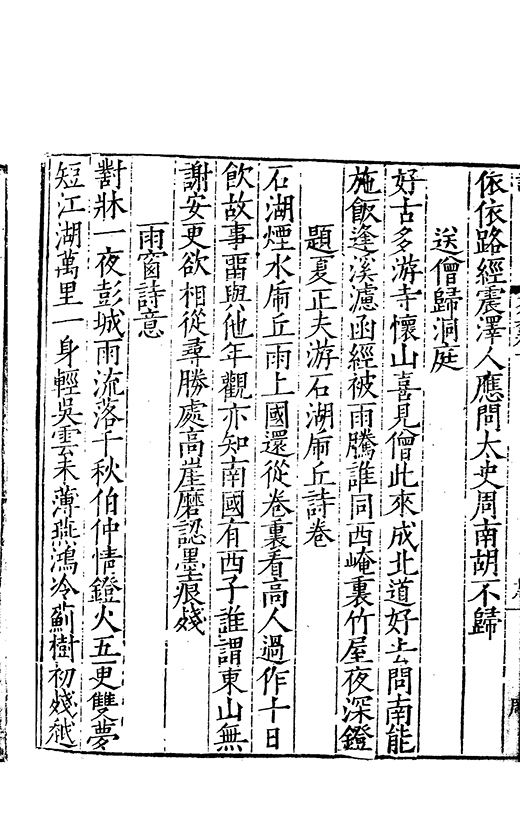 依依路經震澤人應問太史周南胡不歸
送僧歸洞庭
好古多游寺懷山喜見僧此來成北道好去問南能
施飯逢溪濾函經被雨騰誰同西崦裏竹屋夜深鐙
題夏正夫游石湖虎丘詩卷
石湖煙水虎丘雨上國還從卷裏看高人過作十日
飲故事畱與他年觀亦知南國有西子誰謂東山無
謝安更欲相從尋勝處高崖磨認墨痕殘
雨窗詩意
對牀一夜彭城雨流落千秋伯仲情鐙火五更雙夢
短江湖萬里一身輕吳雲未薄燕鴻冷薊樹初殘越